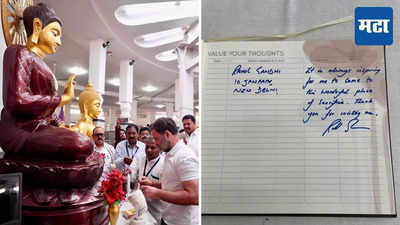 मटा
VALUE YOUR THOUGHTS
RAHUL GANDHI
10 JANPATH
NEW DELHI
It is always inspiring
for me to come to
this wonderful place
of Sacrifice. Thank
you for inviting me.